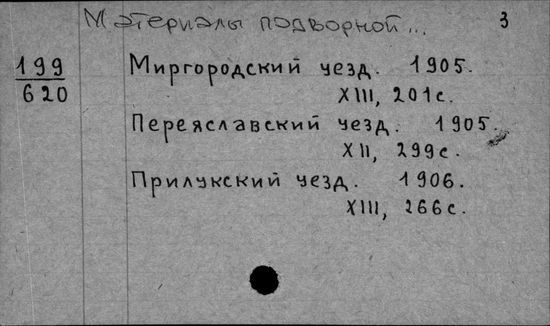 Материалы подворной... 3
199
620
Миргородский уезд. 1905.
XIII, 201с.
Переяславский уезд. 1905.
XII, 299с.
Прилукский уезд. 1906.
XIII, 266с.